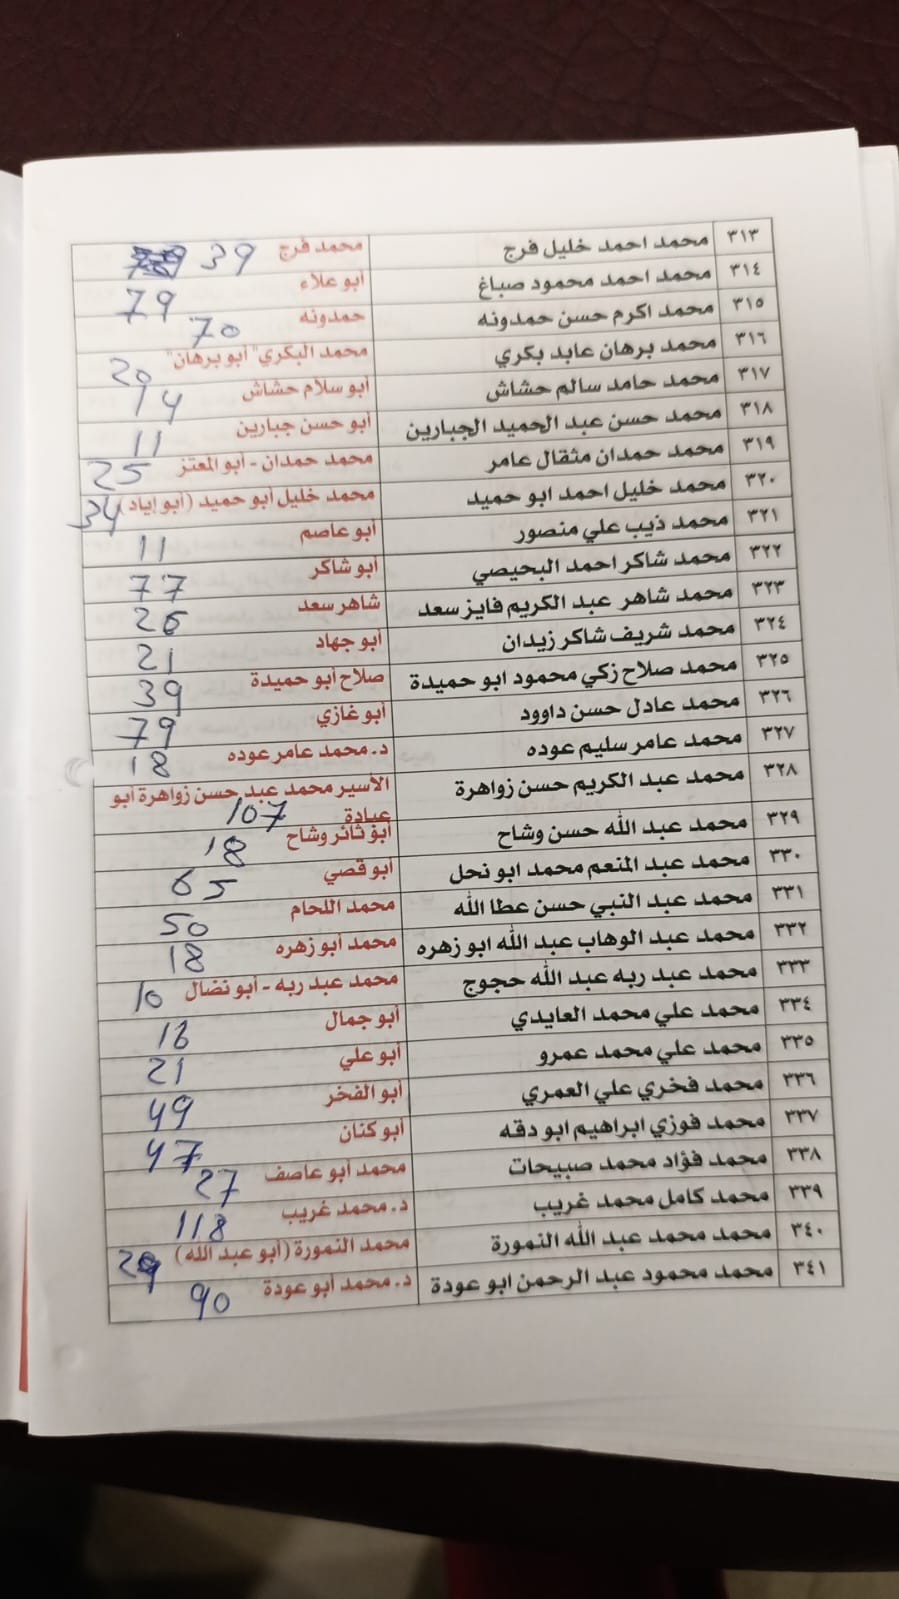 ٣١٣ محمد احمد خليل فرج محمد فرج 39
٣١٤ محمد احمد محمود صباغ أبو علاء 79
٣١٥ محمد اكرم حسن حمدونه حمدونه 70
٣١٦ محمد برهان عابد بكري محمد البكري "أبو برهان" 20
٣١٧ محمد حامد سالم حشاش أبو سلام حشاش 14
٣١٨ محمد حسن عبد الحميد الجبارين أبو حسن جبارين 11
٣١٩ محمد حمدان مثقال عامر محمد حمدان - أبو المعتز 25
٣٢٠ محمد خليل احمد ابو حميد محمد خليل أبو حميد (أبو إياد) 34
٣٢١ محمد ذيب علي منصور أبو عاصم 11
٣٢٢ محمد شاكر احمد البحيصي أبو شاكر 77
٣٢٣ محمد شاهر عبد الكريم فايز سعد شاهر سعد 26
٣٢٤ محمد شريف شاكر زيدان أبو جهاد 21
٣٢٥ محمد صلاح زكي محمود ابو حميدة صلاح أبو حميدة 39
٣٢٦ محمد عادل حسن داوود أبو غازي 79
٣٢٧ محمد عامر سليم عوده د. محمد عامر عوده 18
٣٢٨ محمد عبد الكريم حسن زواهرة الأسير محمد عبد حسن زواهرة أبو
عبادة 107
٣٢٩ محمد عبد الله حسن وشاح أبو ثائر وشاح 18
٣٣٠ محمد عبد المنعم محمد ابو نحل أبو قصي 65
٣٣١ محمد عبد النبي حسن عطا الله محمد اللحام 50
٣٣٢ محمد عبد الوهاب عبد الله ابو زهره محمد أبو زهره 18
٣٣٣ محمد عبد ربه عبد الله حجوج محمد عبد ربه - أبو نضال 10
٣٣٤ محمد علي محمد العايدي أبو جمال 16
٣٣٥ محمد علي محمد عمرو أبو علي 21
٣٣٦ محمد فخري علي العمري أبو الفخر 49
٣٣٧ محمد فوزي ابراهيم ابو دقه أبو كنان 47
٣٣٨ محمد فؤاد محمد صبيحات محمد أبو عاصف 27
٣٣٩ محمد كامل محمد غريب د. محمد غريب 118
٣٤٠ محمد محمد عبد الله النمورة محمد النمورة (أبو عبد الله)
٣٤١ محمد محمود عبد الرحمن ابو عودة د. محمد أبو عودة 90